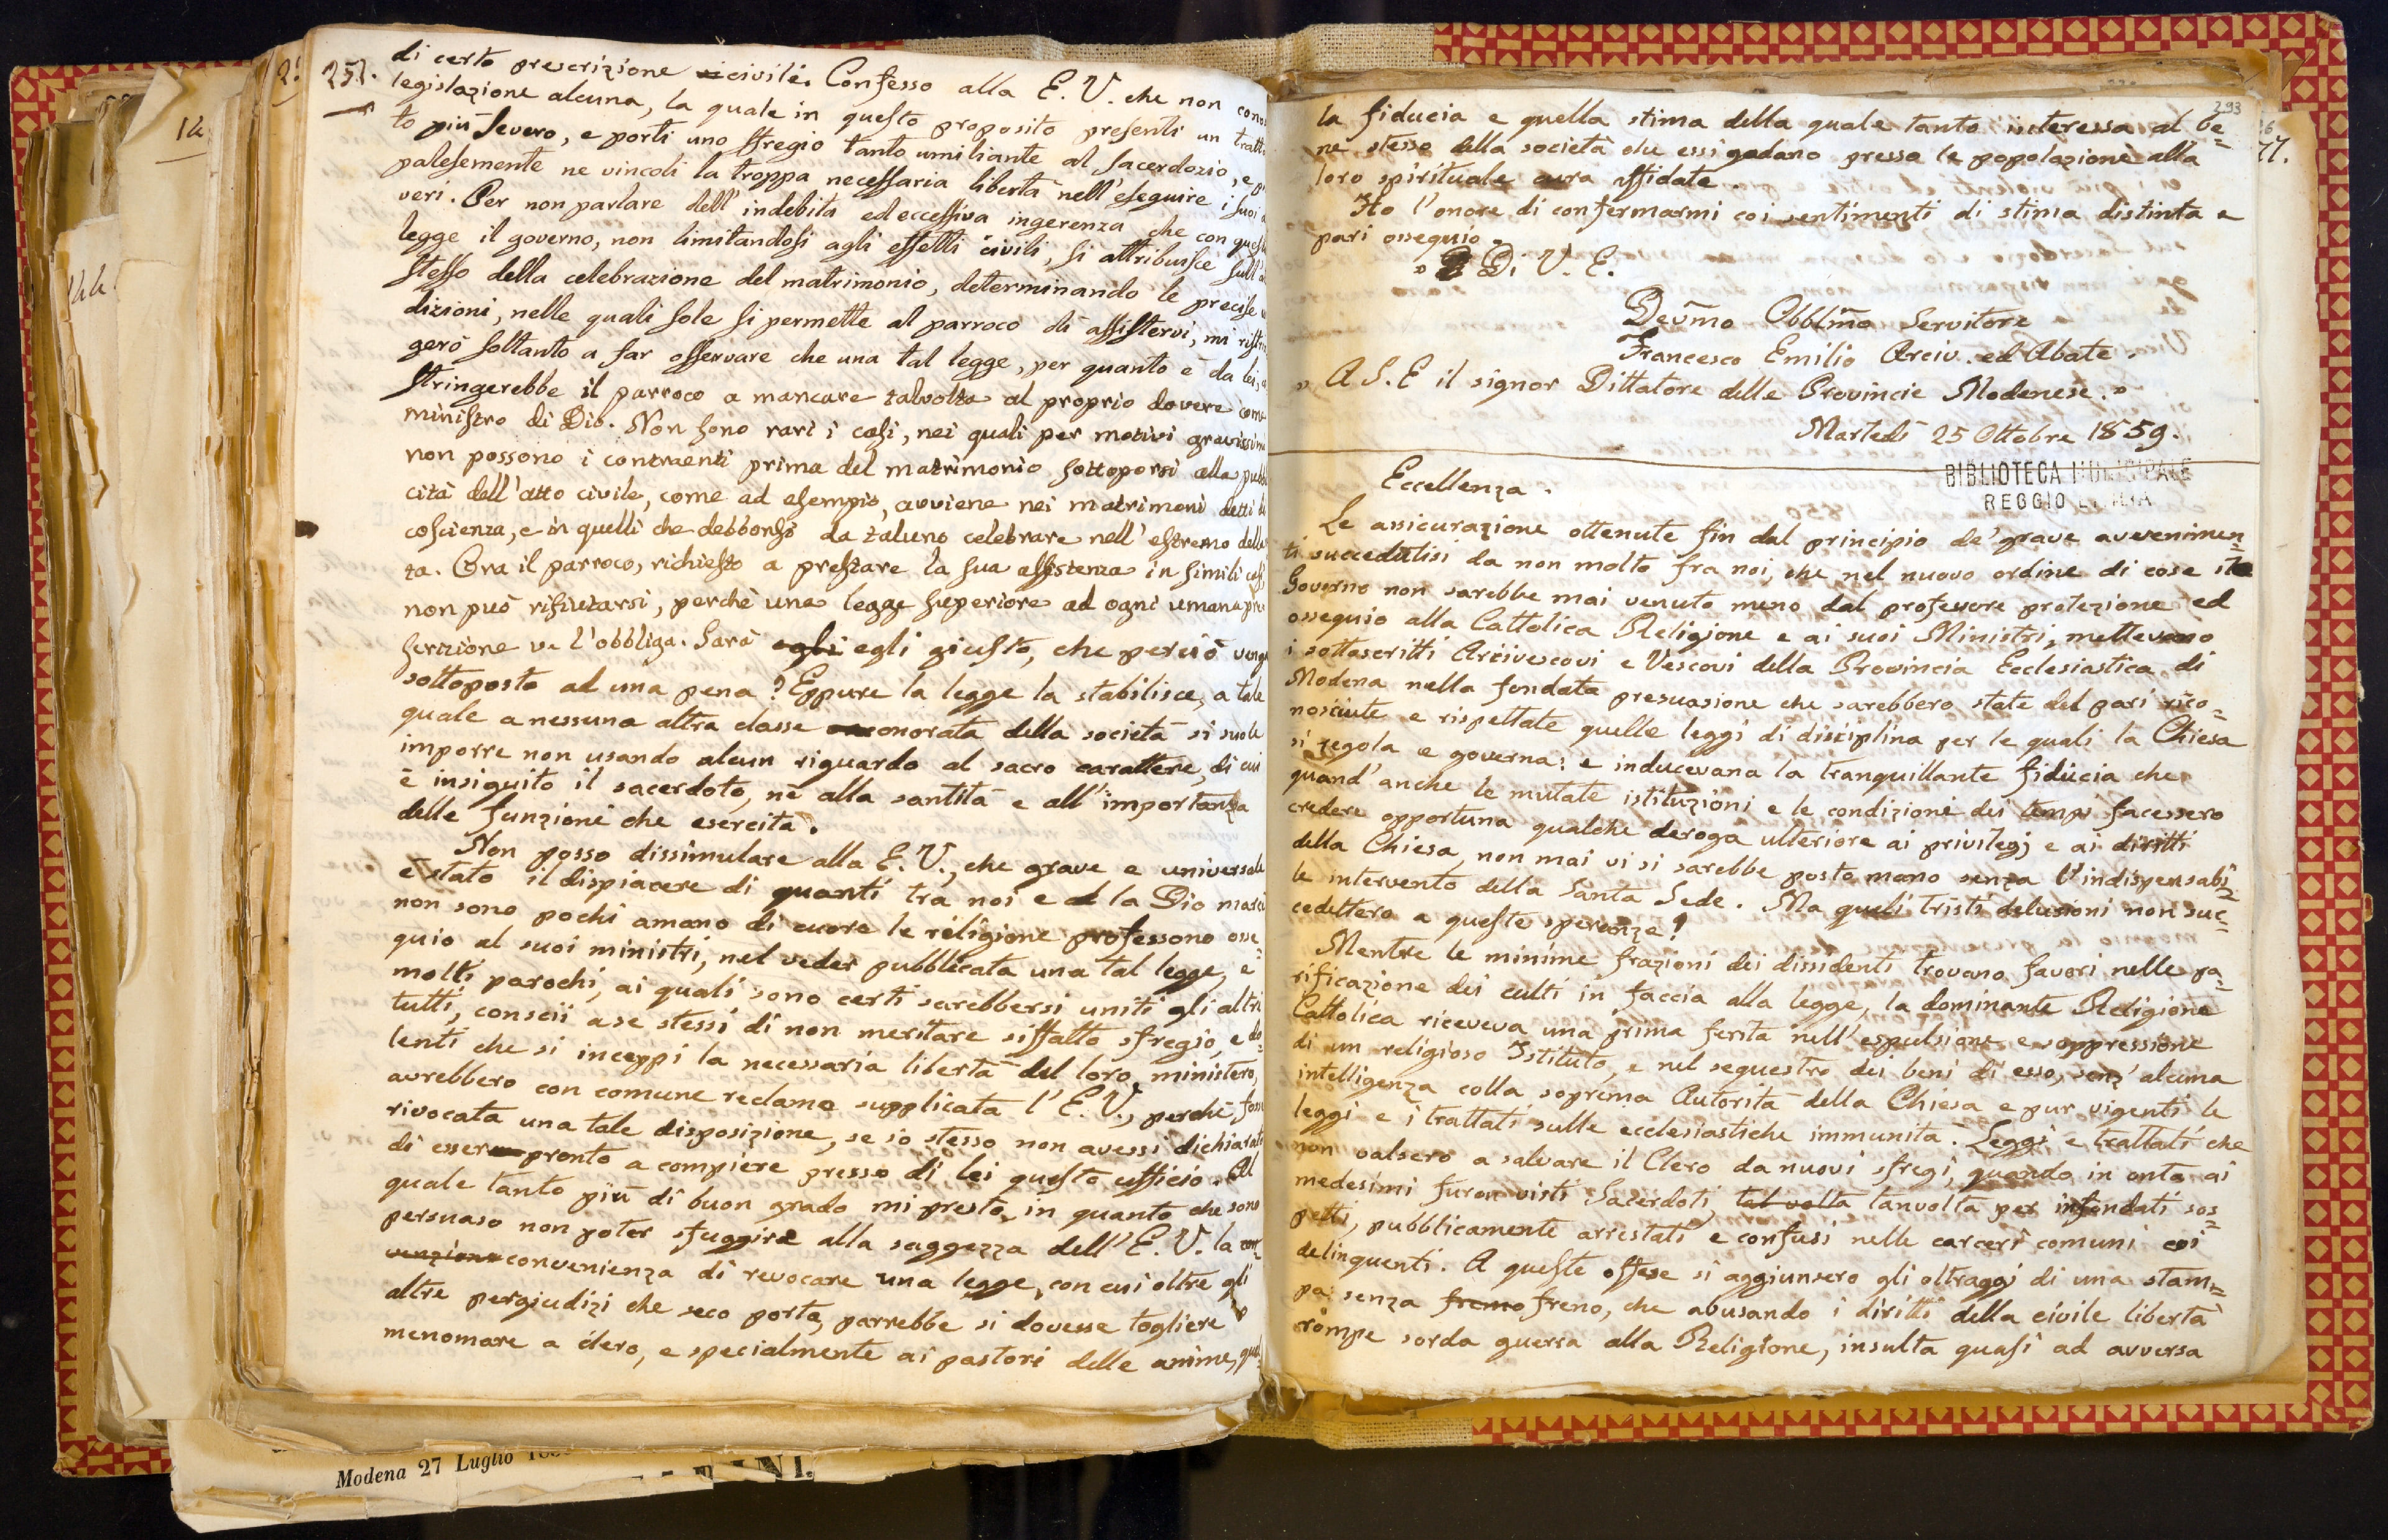 252.
di certo prescrizione civile. Confesso alla E. V. che non
legislazione alcuna, la quale in questo proposito presenti un
to più severo, e porti uno sfregio tanto umiliante al sacerdozio, e
palesemente ne vincoli la troppa necessaria libertà nell'eseguire i suoi
veri. Per non parlare dell'indebita ed eccessiva ingerenza che con
legge il governo, non limitandosi agli effetti civili, si attribuisce
stesso della celebrazione del matrimonio, determinando le precise
dizioni, nelle quali sole si permette al parroco di assistervi, mi
gerò soltanto a far osservare che una tal legge, per quanto è da lei,
stringerebbe il parroco a mancare talvolta al proprio dovere come
ministro di Dio. Non sono rari i casi, nei quali per motivi gravissimi
non possono i contraenti prima del matrimonio sottoporsi alla pubbli
cità dell'atto civile, come ad esempio, avviene nei matrimoni detti di
coscienza, e in quelli che debbonsi da taluno celebrare nell'estremo della
ta. Ora il parroco, richiesto a prestare la sua assistenza in simili casi,
non può rifiutarsi, perchè una legge superiore ad ogni umana pre
scrizione ve l'obbliga. Sarà egli egli giusto, che perciò venga
sottoposto ad una pena? Eppure la legge la stabilisce, a tale
quale a nessuna altra classe onorata della società si suole
imporre non usando alcun riguardo al sacro carattere, di cui
è insiguito il sacerdote, nè alla santità e all'importanza
delle funzioni che esercita.
Non posso dissimulare alla E. V., che grave e universale
è stato il dispiacere di quanti tra noi e la Dio mercè
non sono pochi amano di cuore le religione professono osse
quio al suoi ministri, nel veder pubblicata una tal legge, e
molti parochi, ai quali sono certi sarebbersi uniti gli altri
tutti, conscii a se stessi di non meritare siffatto sfregio, e do=
lenti che si inceppi la necessaria libertà del loro ministero,
avrebbero con comune reclamo supplicata l'E. V., perchè fosse
rivocata una tale disposizione, se io stesso non avessi dichiarato
di esser pronto a compiere presso di lei questo ufficio. Al
quale tanto più di buon grado mi presto, in quanto che sono
persuaso non poter sfuggire alla saggezza dell'E. V. la con=
venzione convenienza di revocare una legge, con cui oltre gli
altre pergiudizi che seco porta, parrebbe si dovesse togliere o
menomare a clero, e specialmente ai pastori delle anime, quel=
Modena 27 Luglio
293
la fiducia e quella stima della quale tanto interessa al be=
ne stesso della società che essi godano presso le popolazione alla
loro spirituale cura affidate.
Ho l'onore di confermarmi coi sentimenti di stima distinta e
pari ossequio.
» Di V. E.
Devm̃o Obblm̃o Servitore
Francesco Emilio Arciv. ed Abate.
» A S. E il signor Dittatore delle Provincie Modenese. »
Martedì 25 Ottobre 1859.
BIBLIOTECA MUNICIPALE
REGGIO EMILIA
Eccellenza.
Le assicurazione ottenute fin dal principio de' grave avvenimen=
ti succedutisi da non molto fra noi, che nel nuovo ordine di cose il
Governo non sarebbe mai venuto meno dal professare protezione ed
ossequio alla Cattolica Religione e ai suoi Ministri, mettevano
i sottoscritti Arcivescovi e Vescovi della Provincia Ecclesiastica di
Modena nella fondata presuasione che sarebbero state del pari rico=
nosciute e rispettate quelle leggi di disciplina per le quali la Chiesa
si regola e governa: e inducevana la tranquillante fiducia che
quand'anche le mutate istituzioni e le condizioni dei tempi facessero
credere opportuna qualche deroga ulteriore ai privilegj e ai diritti
della Chiesa, non mai vi si sarebbe posto mano senza l'indispensabi=
le intervento della Santa Sede. Ma quali tristi delusioni non suc=
cedettero a queste speranze!
Mentre le minime frazioni dei dissidenti trovano favori nelle pa=
rificazione dei culti in faccia alla legge, la dominante Religione
Cattolica riceveva una prima ferita nell'espulsione e soppressione
di un religioso Istituto, e nel sequestro dei beni di esso, senz'alcuna
intelligenza colla soprema Autorità della Chiesa e pur vigenti le
leggi e i trattati sulle ecclesiastiche immunità. Leggi e trattati che
non valsero a salvare il Clero da nuovi sfregi, quando in onta ai
medesimi furon visti Sacerdoti, tal volta tanvolta per infondati sos=
petti, pubblicamente arrestati e confusi nelle carceri comuni coi
delinquenti. A queste offese si aggiunsero gli oltraggi di una stam=
pa: senza fremo freno, che abusando i diritti della civile libertà
rompe sorda guerra alla Religione, insulta quasi ad avversa